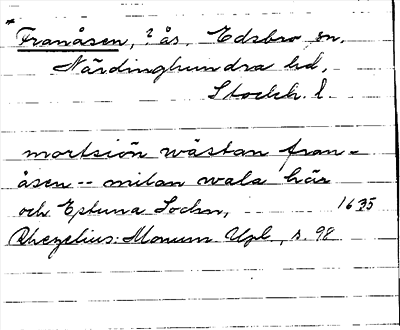 *Franåsen, ? ås, Edsbro sn,
Närdinghundra hd,
Stockh. l.
mortsiön wästan fran=
åsen -- milan wala här
och Estuna Sochn, 1635
Rhezelius: Monum Upl, s. 98